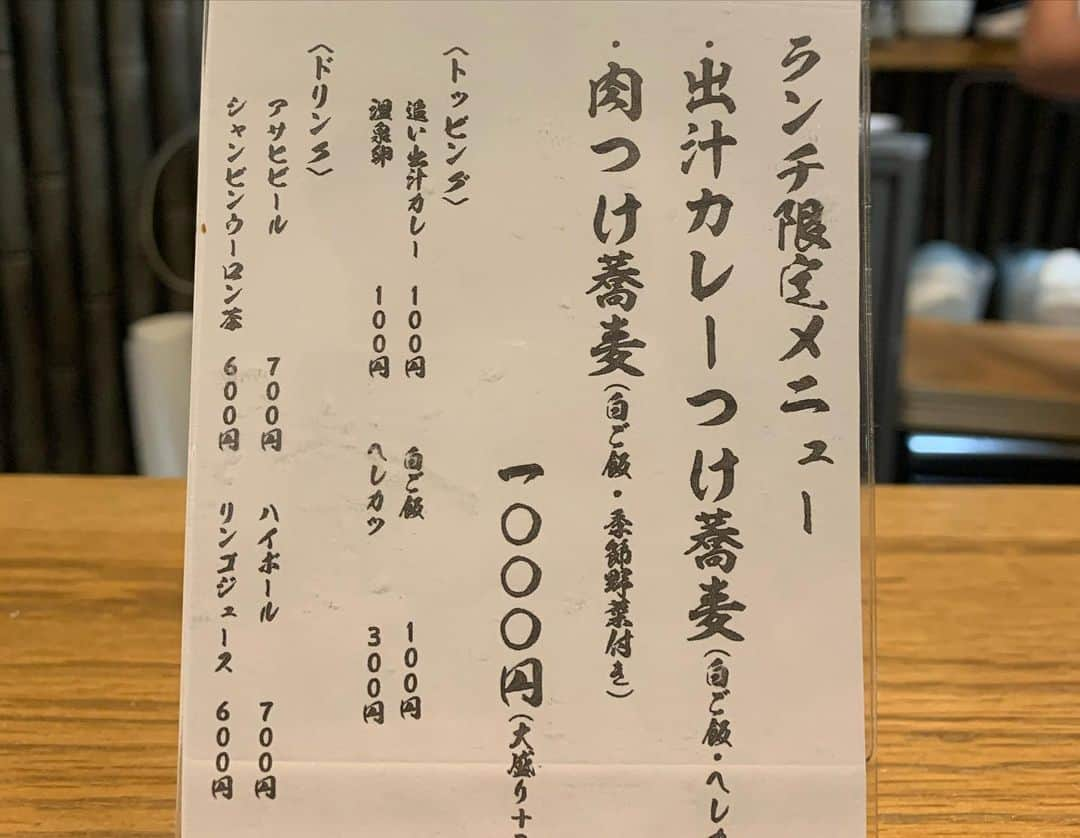 ランチ限定メニュー
・出汁カレーつけ蕎麦(白ご飯・ヘレ
・肉つけ蕎麦(白ご飯・季節野菜付き)
一〇〇〇円(大盛り+
〈トッピング〉
追い出汁カレー 100円 白ご飯 100円
温泉卵 100円 ヘレカツ 300円
〈ドリンク〉
アサヒビール 700円 ハイボール 700円
シャンピンウーロン茶 600円 リンゴジュース 600円